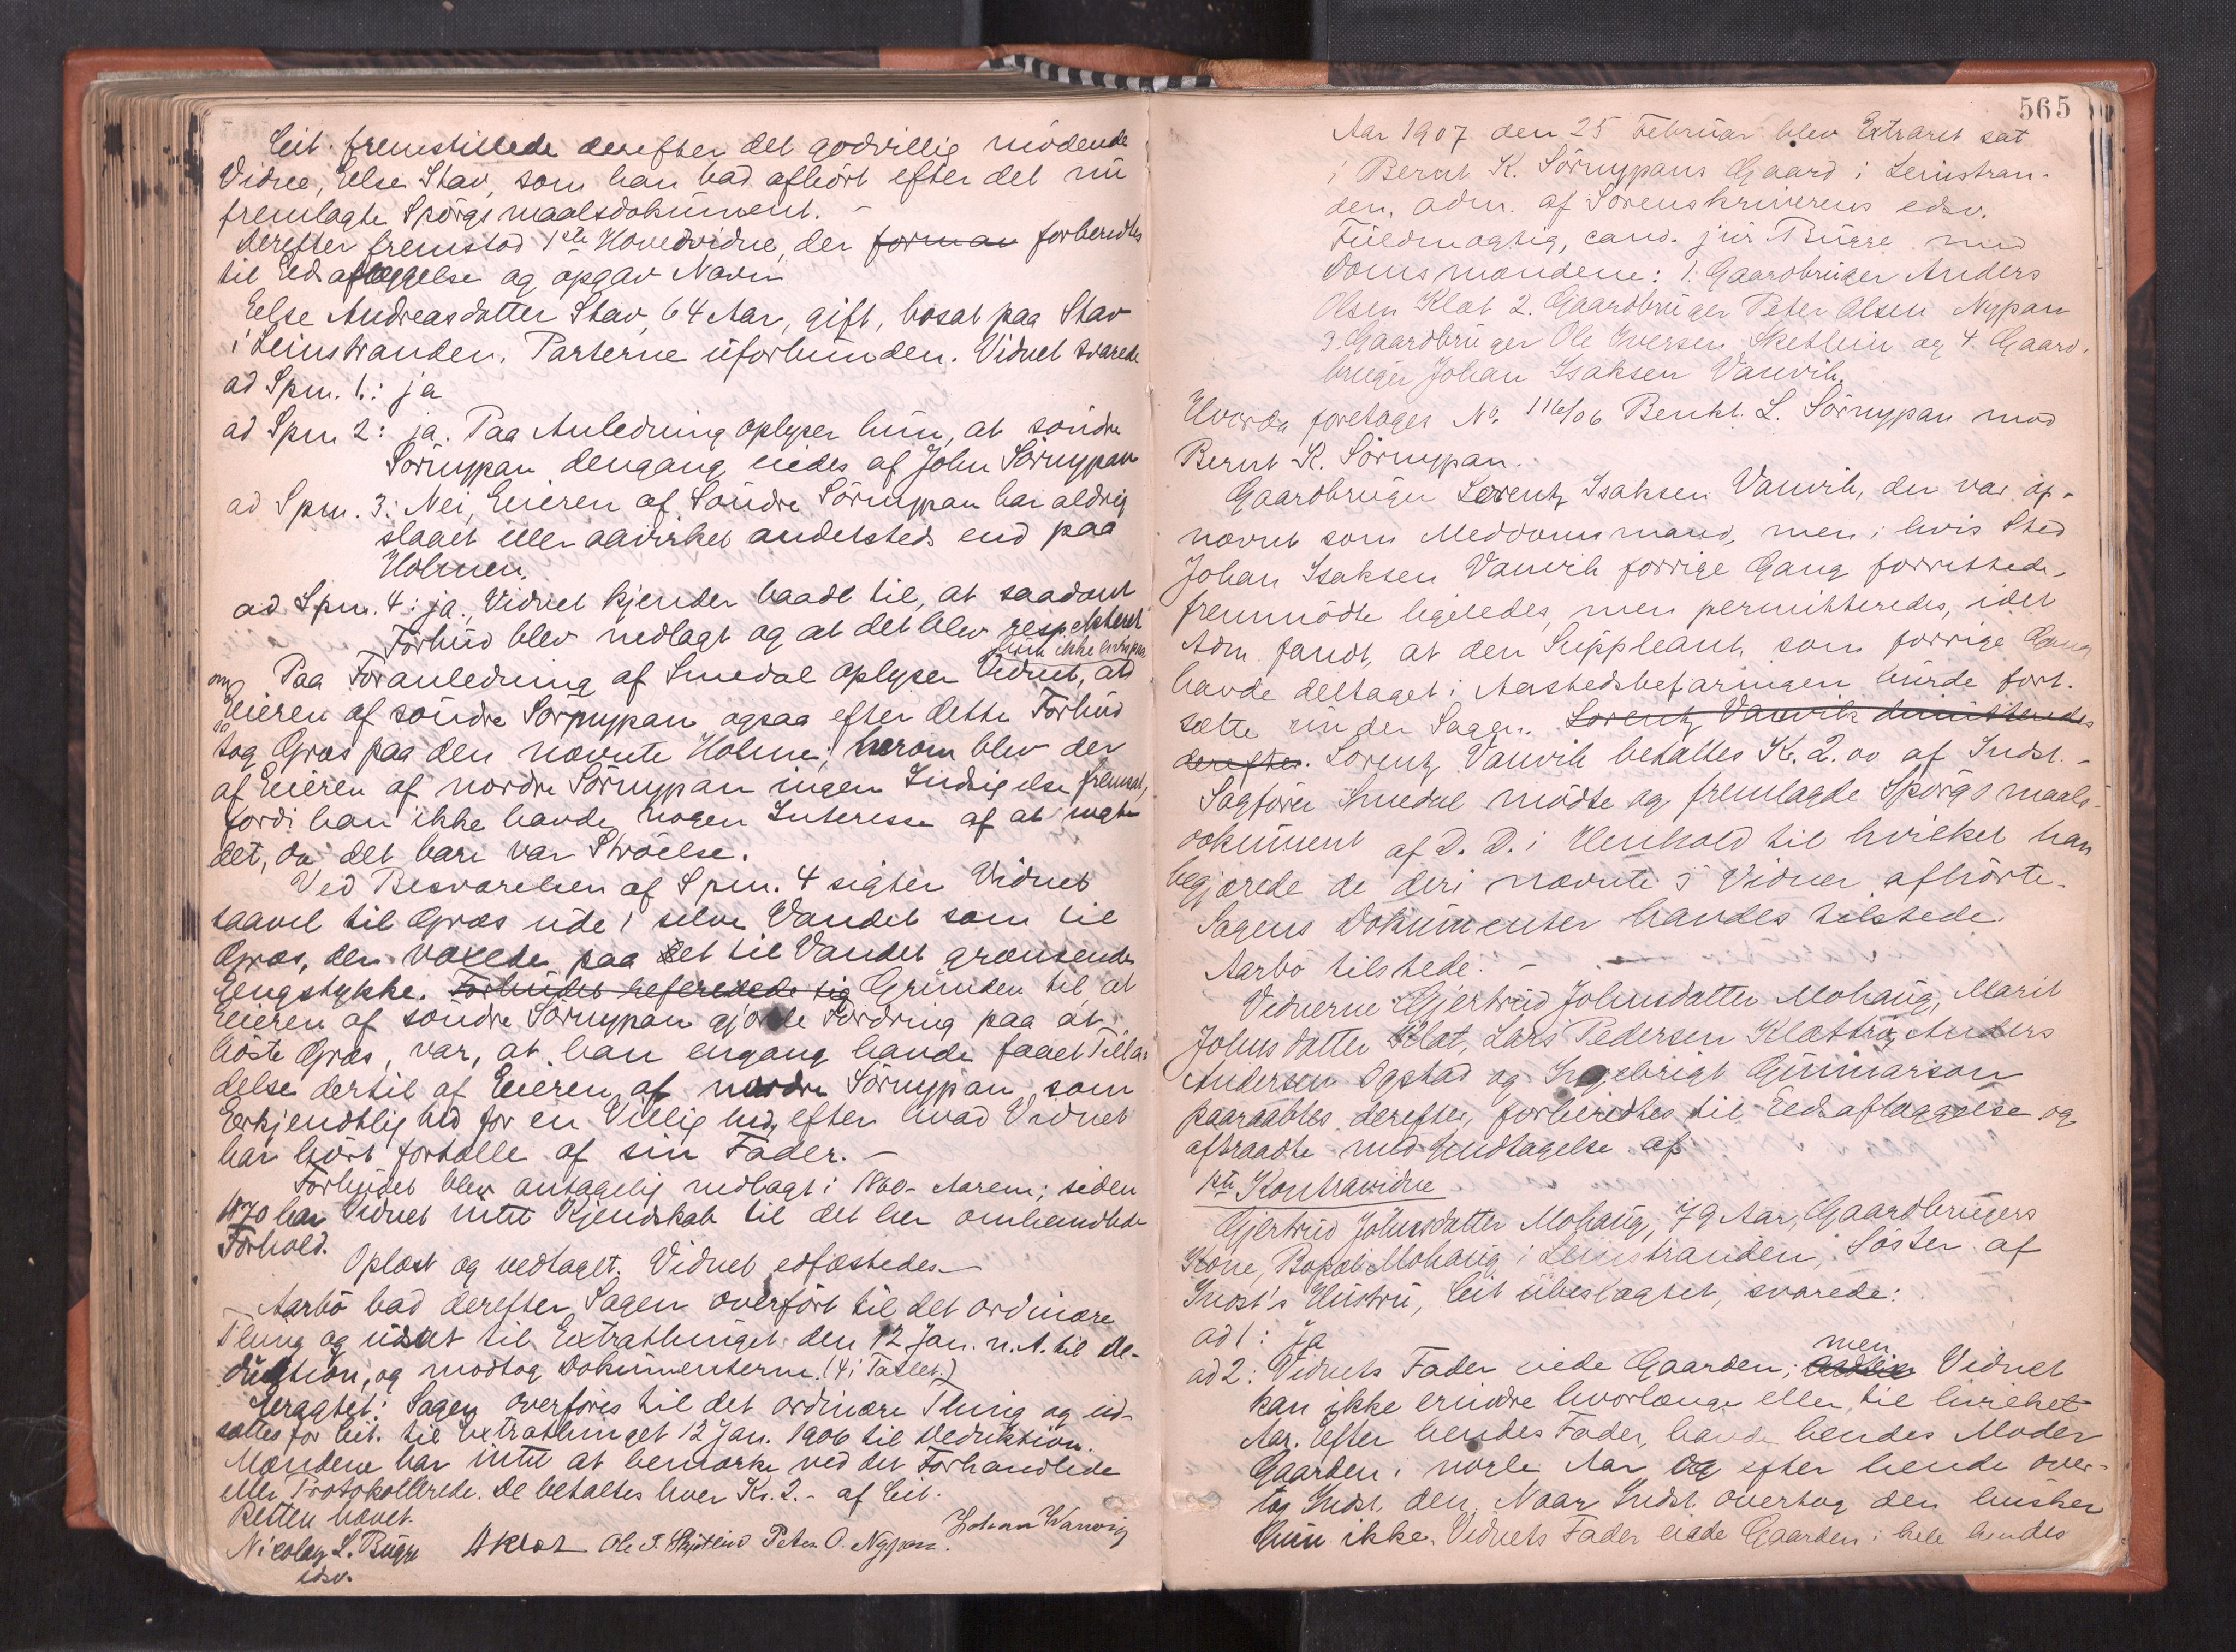 Cit. fremstillede derefter det godvillig mødende
Vidne, Else Stav, som han bad afhørt efter det nu
fremlagte Spörgsmaalsdokument. –
Derefter fremstod 1ste Hovedvidne, der forman forberedtes
til Edsaflæggelse og opgav Navn
Else Andreasdatter Stav, 64 Aar, gift, bosat paa Stav
i Leinstranden. Parterne uforbunden. Vidnet svarede
ad Spm. 1.: ja
ad Spm 2: ja. Paa Anledning oplyser hun, at söndre
Sörnypan dengang eiedes af John Sörnypan
ad Spm. 3: Nei, Eieren af Söndre Sörnypan har aldrig
slaaet eller aavirket andetsteds end paa
Holmen.
ad Spm. 4: ja. Vidnet kjender baade til, at saadant
Forbud blev nedlagt og at det blev respekteret
Paa Foranledning af Smedal oplyser Vidnet, at
om
Eieren af söndre Sörnypan ogsaa efter dette Forbud
tog Græs paa den nævnte Holme; herom blev der
af Eieren af nordre Sörnypan ingen Indsigelse fremsat,
fordi han ikke havde nogen Interesse af at negte
det, da det bare var Ströelse.
Ved Besvarelsen af Spm. 4 sigter Vidnet
saavel til Græs ude i selve Vandet som til
Græs, der voxede paa det til Vandet grænsende
Engstykke. Forbudet refererede sig Grunden til, at
Eieren af söndre Sörnypan gjorde Fordring paa at
höste Græs, var, at han engang havde faaet Tilla-
delse dertil af Eieren af nordre Sörnypan som
Erkjendtlighed for en Villighed, efter hvad Vidnet
har hört fortælle af sin Fader. –
Forbudet blev antagelig nedlagt i 1860-Aarene; siden
1870 har Vidnet intet Kjendskab til det her omhandlede
Forhold.
Oplæst og vedtaget. Vidnet edfæstedes. –
Aarbö bad derefter Sagen overfört til det ordinære
Thing og udsat til Extrathinget den 12 Jan. n. A. til De-
duktion, og modtog Dokumenterne. (4 i Tallet.)
Eragtet: Sagen overföres til det ordinære Thing og ud-
sættes for Cit. til Extrathinget 12 Jan. 1906 til Deduktion.
Mændene har intet at bemærke ved det Forhandlede
eller Protokollerede. De betaltes hver Kr. 2. – af Cit.
Retten hævet.
Nicolay L. Bugge A Klæt Ole I. Skjetlein Peter O. Nypan. Johan Wanvig
edsv.
565
Aar 1907 den 25 Februar blev Extraret sat
i Bernt K. Sörnypans Gaard i Leinstran-
den, adm. af Sorenskriverens edsv.
Fuldmægtig, cand. jur Bugge med
Domsmændene: 1. Gaardbruger Anders
Olsen Klæt 2. Gaardbruger Peter Olsen Nypan
3. Gaardbruger Ole Iversen Sketlein og 4. Gaard-
bruger Johan Isaksen Vanvik.
Hvorda foretages No. 116/06 Benkt. L. Sörnypan mod
Bernt K. Sörnypan.
Gaardbruger Lorentz Isaksen Vanvik, der var op-
nævnt som Meddomsmand, men i hvis Sted
Johan Isaksen Vanvik forrige Gang forrettede,
fremmödte ligeledes, men permitteredes, idet
Adm. fandt, at den Suppleant, som forrige Gang
havde deltaget i Aastedsbefaringen burde fort-
sætte under Sagen. Lorentz Vanvik dimitteredes
derefter. Lorentz Vanvik betaltes Kr. 2.00 af Indst. –
Sagförer Smedal mödte og fremlagde Spörgsmaals-
dokument af D. D. i Henhold til hvilket han
begjærede de deri nævnte 5 Vidner afhörte.
Sagens Dokumenter havdes tilstede.
Aarbö tilstede. –
Vidnerne Gjertrud Johnsdatter Mohaug, Marit
Johnsdatter Klæt, Lars Pedersen Klættrö, Anders
Andersen Ogstad og Ingebrigt Gunnarson
paaraabtes derefter, forberedtes til Edsaflæggelse og
aftraadte med Undtagelse af
1ste Kontravidne
Gjertrud Johnsdatter Mohaug, 79 Aar, Gaardbrugers
Kone, Bopæl Mohaug i Leinstranden, Söster af
Indst's Hustru, Cit ubeslægtet, svarede:
ad 1: ja
men
ad 2: Vidnets Fader eiede Gaarden; Vidnet
kan ikke erindre hvorlænge eller til hvilket
Aar. Efter hendes Fader, havde hendes Moder
Gaarden i nogle Aar og efter hende over-
tog Indst. den. Naar Indst. overtog den husker
hun ikke. Vidnets Fader eiede Gaarden i hele hendes